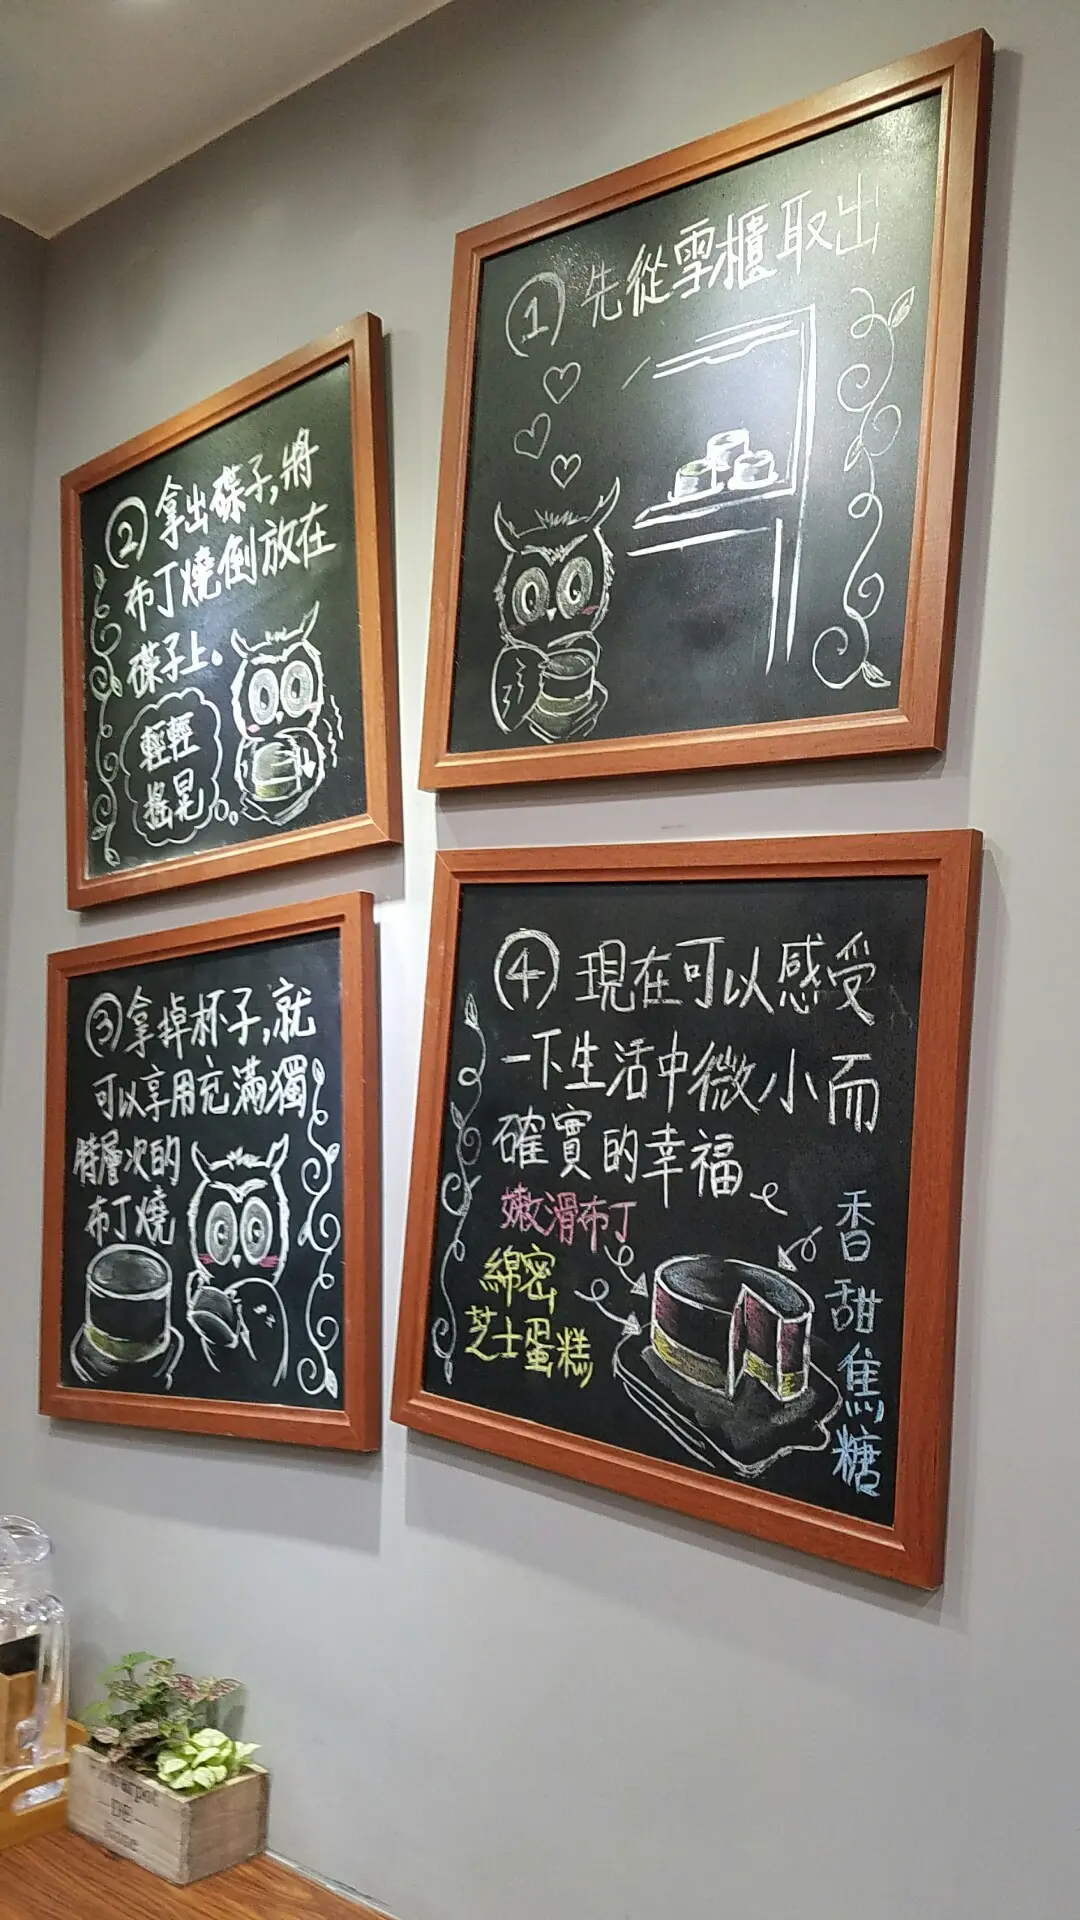 ① 先從雪櫃取出
② 拿出碟子,將
布丁燒倒放在
碟子上。
輕輕
搖晃
③ 拿掉杯子,就
可以享用充滿獨
特層次的
布丁燒
④ 現在可以感受
一下生活中微小而
確實的幸福
嫩滑布丁
綿密
芝士蛋糕
香甜焦糖